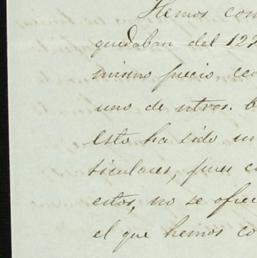 Hemos com
quedaban del 127
mismo precio ce
uno de ntros. b
esto ha sido m
ticulares, pues c
estos, no se ofre
el que hemos co